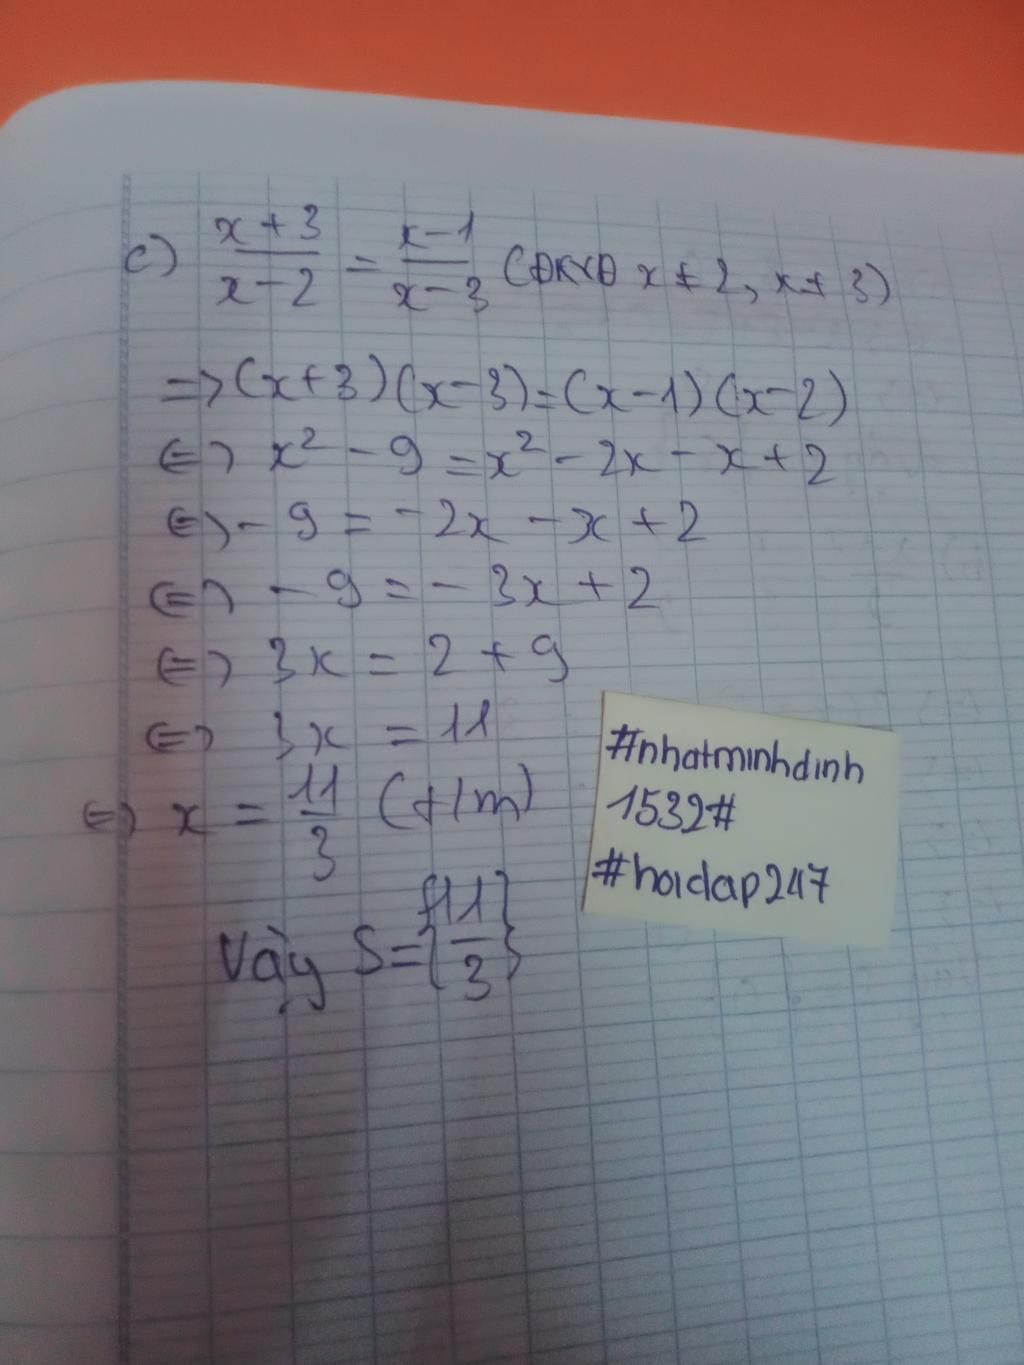 c) \frac{x+3}{x-2} = \frac{x-1}{x-3} (ĐKXĐ x ≠ 2, x ≠ 3)
=> (x+3)(x-3) = (x-1)(x-2)
<=> x² - 9 = x² - 2x - x + 2
<=> - 9 = -2x - x + 2
<=> - 9 = - 3x + 2
<=> 3x = 2 + 9
<=> 3x = 11
<=> x = \frac{11}{3} (t/m)
Vậy S = {\frac{11}{3}}
#nhatminhdinh
1532#
#hoidap247